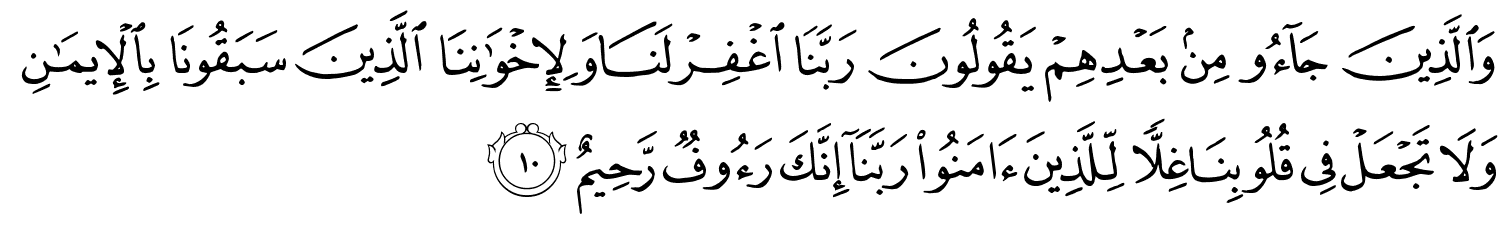 وَٱلَّذِينَ جَآءُو مِنۢ بَعْدِهِمْ يَقُولُونَ رَبَّنَا ٱغْفِرْ لَنَا وَلِإِخْوَٰنِنَا ٱلَّذِينَ سَبَقُونَا بِٱلْإِيمَـٰنِ
وَلَا تَجْعَلْ فِى قُلُوبِنَا غِلًّا لِّلَّذِينَ ءَامَنُوا۟ رَبَّنَآ إِنَّكَ رَءُوفٌ رَّحِيمٌ ١٠